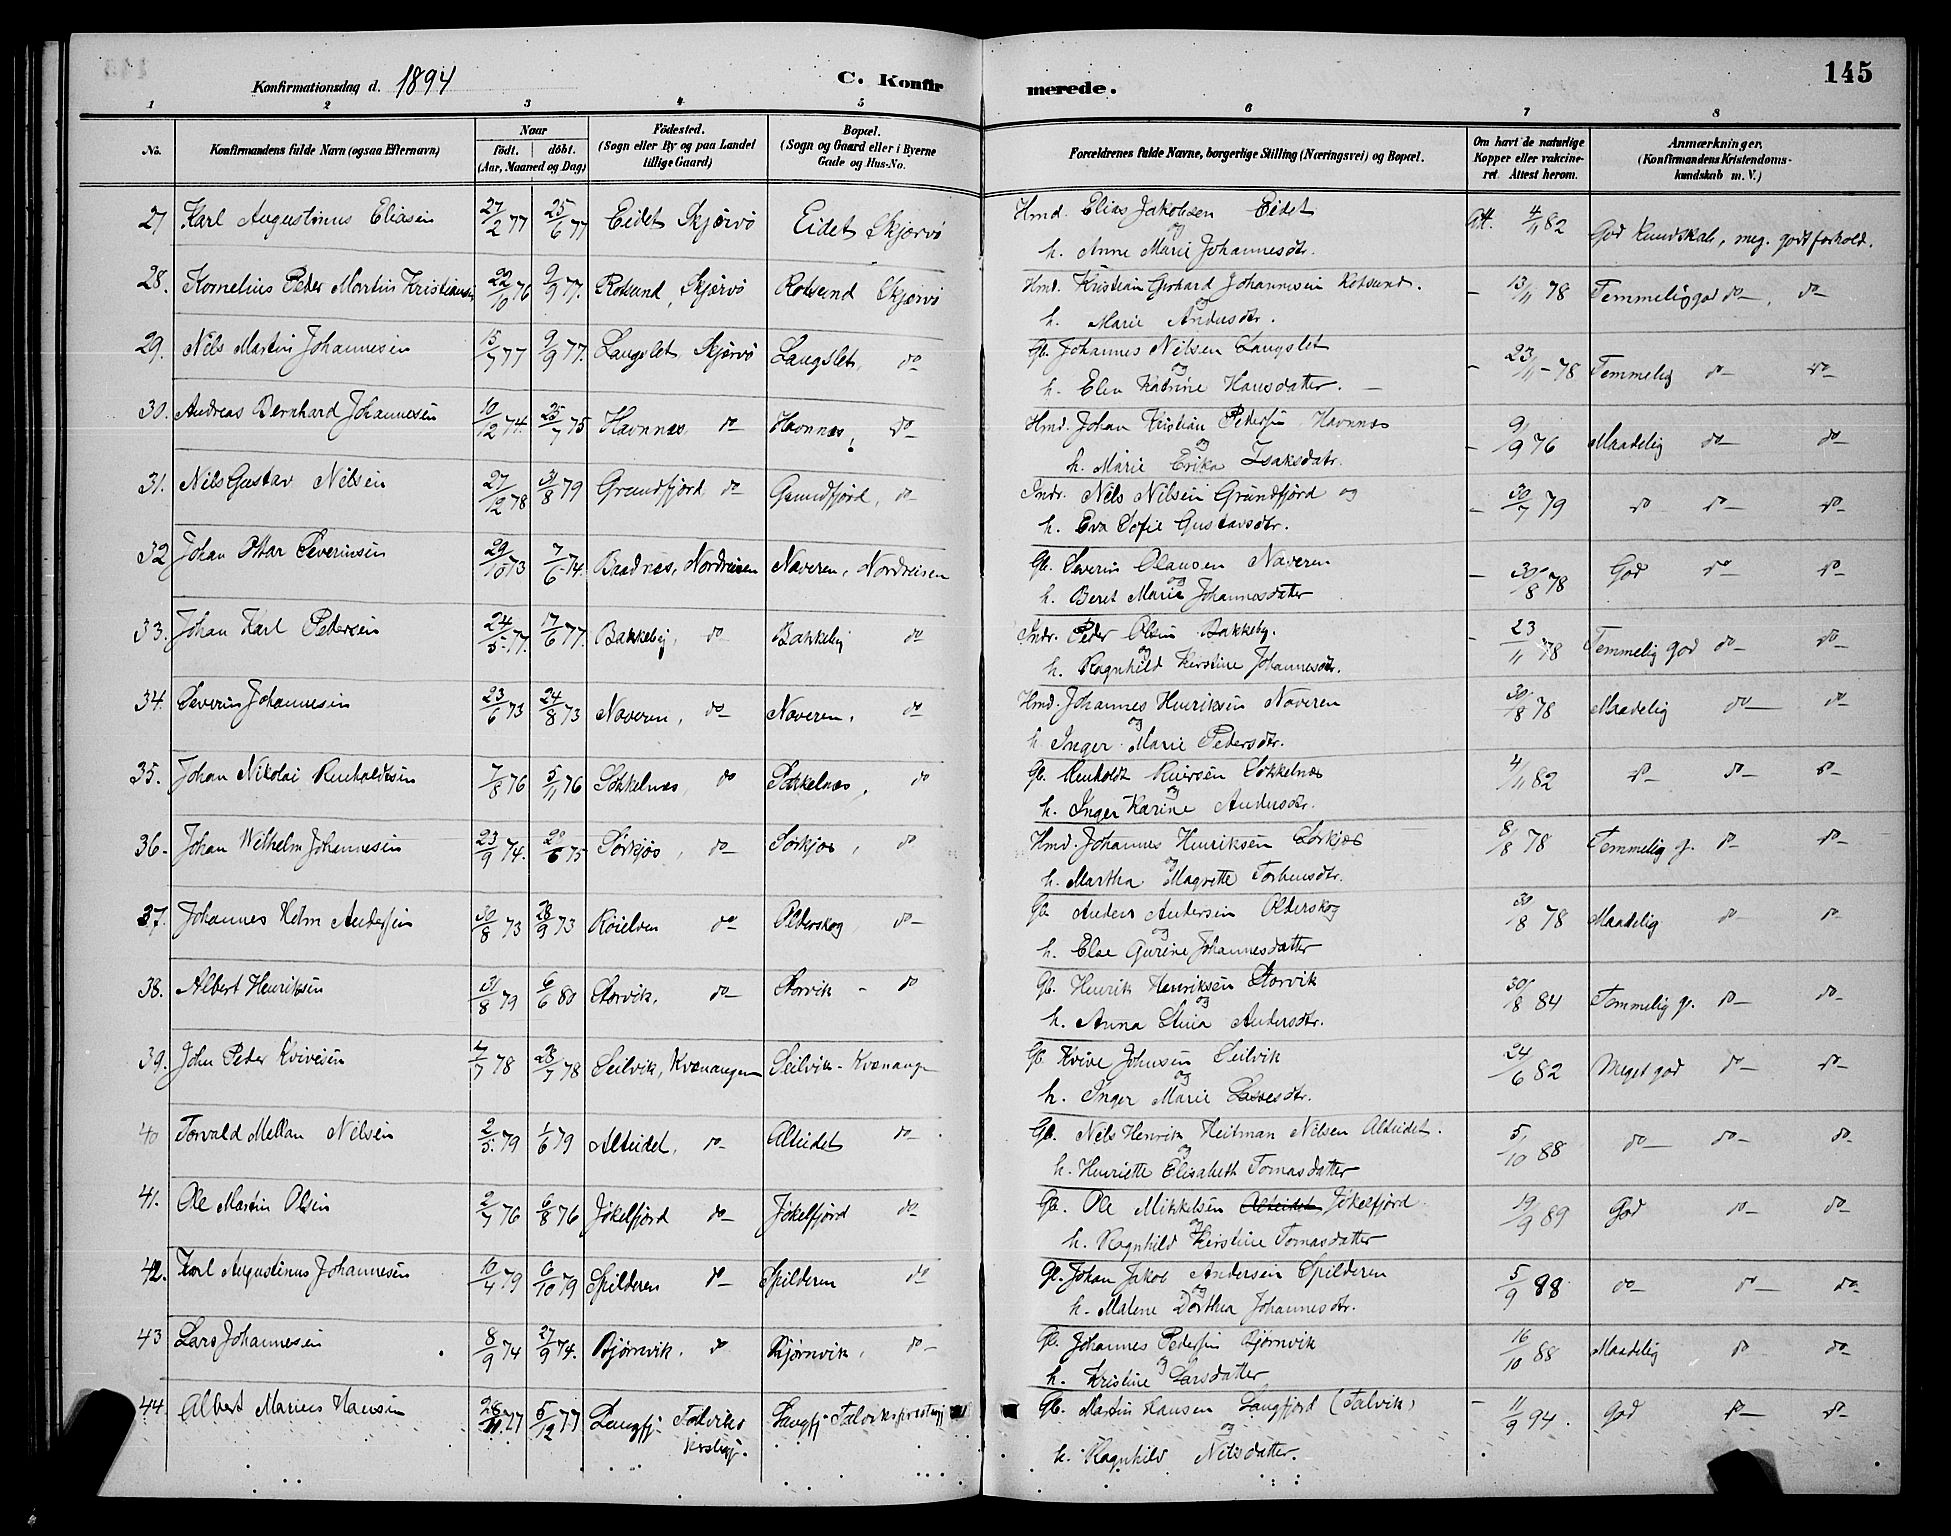 Konfirmationsdag d. 1894
C. Konfir
merede.
145
1 2 3 4 5 6 7 8
No.
Konfirmandens fulde Navn (ogsaa Efternavn)
Naar
født. døbt.
(Aar, Maaned og Dag)
Fødested.
(Sogn eller By og paa Landet
tillige Gaard)
Bopæl.
(Sogn og Gaard eller i Byerne
Gade og Hus-No.
Forældrenes fulde Navne, borgerlige Stilling (Næringsvei) og Bopæl.
Om havt de naturlige
Kopper eller vakcine-
ret. Attest herom.
Anmærkninger.
(Konfirmandens Kristendoms-
kundskab m. V.)
27 Karl Augustinus Eliasen 27/2 77 25/6 77 Eidet Skjervø Eidet Skjervø Hmd. Elias Jakobsen Eidet Att. 4/11 82 God Kundskab, meg. godt forhold.
og
h. Anne Marie Johannesdtr.
28. Kornelius Peder Martin Kristiansen 22/10 76 9/9 77. Rotsund, Skjervø Rotsund Skjervø Hmd. Kristian Gerhard Johannesen Rotsund. – 13/11 78 Temmelig god do –, do –
og
h. Marie Andersdtr.
29. Nils Martin Johannesen 15/7 77 9/9 77. Langslet Skjervø Langslet, do Gb. Johannes Nilsen Langslet – 23/11 – 78 Temmelig do – do –
og
h. Elen Katrine Hansdatter. –
30. Andreas Bernhard Johannesen 10/12 74. 25/7 75 Havnnæs do – Havnnæs, do – Hmd. Johan Kristian Pedersen Havnnæs – 9/9 76 Maadelig do – do –
og
h. Marie Erika Isaksdatr.
31. Nils Gustav Nilsen 27/12 78 31/8 79 Grundfjord do – Grundfjord, do – Indr. Nils Nilsen Grundfjord og – 30/7 79 do do – do –
h. Eva Sofie Gustavsdtr.
32 Johan Ottar Severinsen 29/10 73 7/6 74. Baadnes, Nordreisen Naveren, Nordreisen Gb. Severin Olausen Naveren – 30/8 78 God do – do –
og
h. Beret Marie Johannesdatter
33. Johan Karl Pedersen 24/5 77. 17/6 77. Bakkeby, do – Bakkeby do Indr. Peder Olsen Bakkeby. – 23/11 78 Temmelig god do – do –
og
h. Ragnhild Kirstine Johannesdtr.
34. Severin Johannesen 23/6 73 24/8 73 Naveren, do – Naveren, do Hmd. Johannes Henriksen Naveren 30/8 78 Maadelig do – do
og
h. Inger Marie Pedersdtr.
35. Johan Nikolai Renholdtsen 7/8 76 5/11 76 Sokkelnæs, do Sokkelnæs, do Gb. Renholdt Iversen Sokkelnæs 4/11 82 do – do – do –
og
h. Inger Karine Andersdtr.
36. Johan Wilhelm Johannesen 23/9 74. 20/6 75 Sørkjos, do – Sørkjos, do Hmd. Johannes Henriksen Sørkjos 8/8 78 Temmelig g. do – do –
og
h. Martha Magrette Torbensdtr.
37. Johannes Holm Andersen 30/8 73 28/9 73 Koielven do Olderskog, do – Gb Anders Andersen Olderskog 30/8 78 Maadelig do do –
og
h. Else Gurine Johannesdatter
38. Albert Henriksen 31/8 79 6/6 80 Storvik, do – Storvik – do Gb. Henrik Henriksen Storvik 30/8 84 Temmelig g. do – do –
og
h. Anna Stina Andersdtr.
39. John Peder Kvivesen 4/7 78 28/7 78 Seilvik, Kvænangen Seilvik – Kvænange Gb. Kvive Johnsen Seilvik 24/6 82 Meget god do – do –
og
h. Inger Marie Lassesdtr.
40 Torvald Mellan Nilsen 2/5 79 1/6 79 Alteidet, do – Alteidet do – Gb. Nels Henrik Heitman Nilsen Alteidet. 5/10 88 do – do – do
og
h. Henriette Elisabeth Tomasdatter
41. Ole Martin Olsen 2/7 76 6/8 76 Jøkelfjord do – Jøkelfjord do – Gb. Ole Mikkelsen Alteidet Jøkelfjord 19/9 89 God do – do –
og
h. Ragnhild Kerstine Tomasdatter
42. Karl Augustinus Johannesen 10/4 79 6/10 79 Spilderen do – Spilderen do Gb. Johan Jakob Andersen Spilderen 5/9 88 do do do –
og
h. Malene Dorthea Johannesdtr.
43 Lars Johannesen 8/9 74 27/9 74. Bjørnvik. do Bjørnvik, do – Gb. Johannes Pedersen Bjørnvik 16/10 88 Maadelig do – do –
og
h. Kristine Larsdatter
44. Albert Marius Hansen 28/11 77 5/12 77 Langfj. Talviks Langfj. Talviks prestegj Gb. Martin Hansen Langfjord (Talvik) – 11/9 94. God do – do –
Prestegj. og
h. Ragnhild Nilsdatter.